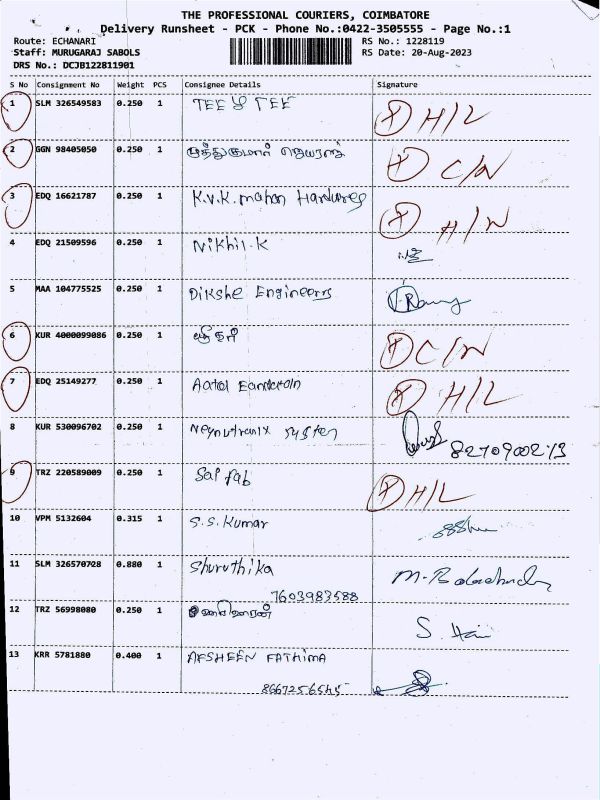 THE PROFESSIONAL COURIERS, COIMBATORE
Delivery Runsheet - PCK - Phone No.:0422-3505555 - Page No.:1
Route: ECHANARI RS No.: 1228119
Staff: MURUGARAJ SABOLS RS Date: 20-Aug-2023
DRS No.: DCJB122811901
S No Consignment No Weight PCS Consignee Details Signature
1 SLM 326549583 0.250 1 TEE Y TEE H/L
2 GGN 98405050 0.250 1 முத்துகுமார் C/N
3 EDQ 16621787 0.250 1 K.V.K. mohan H/N
4 EDQ 21509596 0.250 1 Nikhil.K
5 MAA 104775525 0.250 1 Dikshe Engineers
6 KUR 4000099086 0.250 1 ஸ்ரீதர் C/N
7 EDQ 25149277 0.250 1 H/L
8 KUR 530096702 0.250 1 System 8270900213
9 TRZ 220589009 0.250 1 Sai fab H/L
10 VPM 5132604 0.315 1 S.S. Kumar
11 SLM 326570728 0.880 1 Shuruthika
7603983588
12 TRZ 56998080 0.250 1 S. Hari
13 KRR 5781880 0.400 1 AFSHEEN FATHIMA